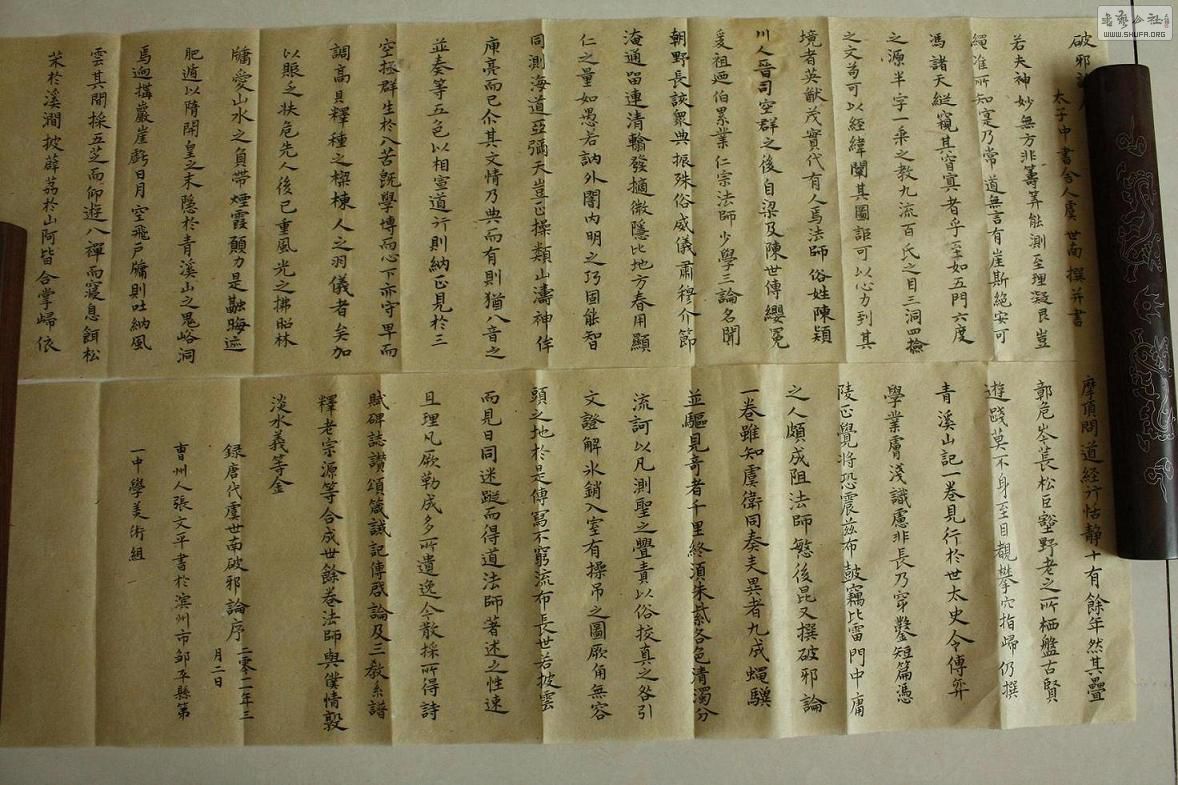 破邪論序
太子中書舍人虞世南撰并書
若夫神妙無方非籌筭能測至理凝邈豈
繩准所知寔乃常道無言有崖斯絕安可
馮諸天縱窺其窅寘者乎至如五門六度
之源半字一乘之教九流百氏之目三洞四撿
之文苟可以經緯闡其圖詎可以心力到其
境者英猷茂實代有人焉法師俗姓陳穎
川人晉司空群之後自梁及陳世傳纓冕
爰祖逎伯累業仁宗法師少學三論名聞
朝野長該衆典振殊俗威儀肅穆介節
淹通留連清翰發擿微隱比地方春用顯
仁之量如愚若訥外闇內明之巧固能智
同測海道亞彌天豈止操類山濤神侔
庾亮而已尒其文情乃典而有則猶八音之
並奏等五色以相宣道行則納正見於三
空極群生於八苦既學博而心下亦守卑而
調高具釋種之樑棟人之羽儀者矣加
以賑乏扶危先人後已重風光之拂照林
牖愛山水之負帶煙霞願力是融晦迹
肥遁以隋開皇之末隱於青溪山之鬼峪洞
焉迥搆巖崖虧日月空飛戶牖則吐納風
雲其間採五芝而仰遊八禪而寢息餌松
茱於溪澗披薜荔於山阿皆合掌歸依
摩頂問道經行恬靜十有餘年然其疊
鄣危岑萇松巨壑野老之所栖盤古賢
遊踐莫不身至目覩攀穴指歸仍撰
青溪山記一卷見行於世太史令傅弈
學業膚淺識慮非長乃穿鑿短篇憑
陵正覺將恐震茲布鼓竊比雷門中庸
之人頗成阻法師愍後昆又撰破邪論
一卷雖知虞衛同奏夫異者九成蝿驥
並驅見奇者千里終須朱紫各色清濁分
流訶以凡測聖之舋責以俗按真之咎引
文證解氷銷入室有操吊之圖厥角無容
頭之地於是傳寫不窮流布長世若披雲
而見日同迷蹤而得道法師著述之性速
且理凡厥勒成多所遺逸今散採所得詩
賦碑誌讚頌箴誡記傳啓論及三教系譜
釋老宗源等合成世餘卷法師與僕情敦
淡水義等金
録唐代虞世南破邪論序二零一二年三
月二日
曹州人張文平書於濱州市邹平縣第
一中學美術組
書藝公社
WWW.SHUFA.ORG